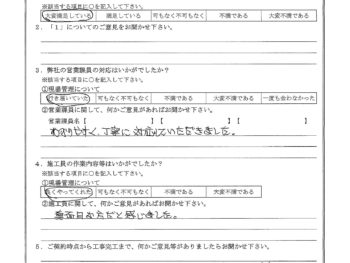 ※該当する項目に○を記入して下さい。
大変満足している 満足している 可もなく不可もなく 不満である 大変不満である
2．「1」についてのご意見をお聞かせ下さい。
3．弊社の営業職員の対応はいかがでしたか？
※該当する項目に○を記入して下さい。
①現場管理について
行き届いていた 可もなく不可もなく 不満である 大変不満である 一度も会わなかった
②営業職員に関して、何かご意見があればお聞かせ下さい。
営業職員名【 】【 】【 】
わかりやすく、丁寧に対応していただきました。
4．施工員の作業内容等はいかがでしたか？
※該当する項目に○を記入して下さい。
①現場管理について
良くやってくれた 可もなく不可もなく 不満である 大変不満である
②施工員に関して、何かご意見があればお聞かせ下さい。
真面目な方だと感じました。
5．ご契約時点から工事完工まで、何かご意見等がありましたらお聞かせ下さい。